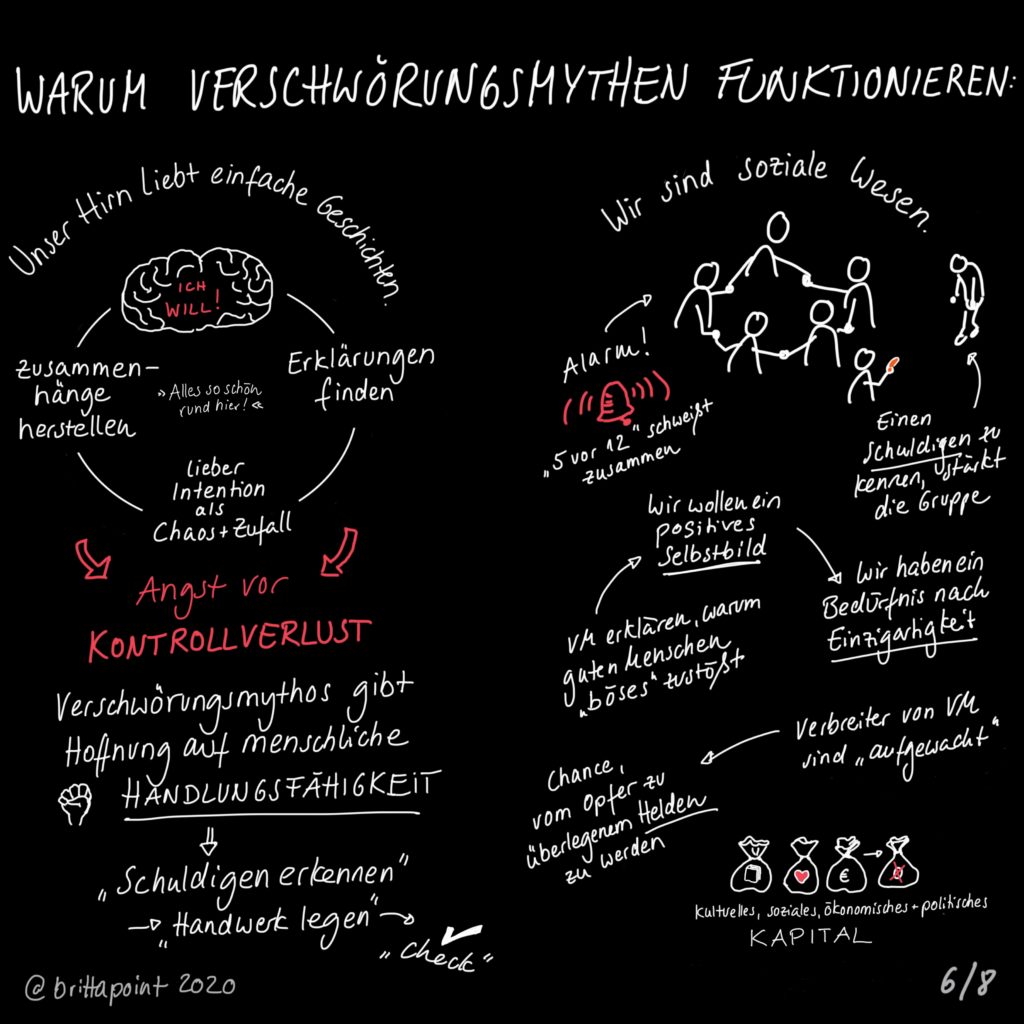 WARUM VERSCHWÖRUNGSMYTHEN FUNKTIONIEREN:
Unser Hirn liebt einfache Geschichten.
ICH
WILL!
Zusammen-
hänge
herstellen
"Alles so schön
rund hier!"
Erklärungen
finden
lieber
Intention
als
Chaos + Zufall
Angst vor
KONTROLLVERLUST
Verschwörungsmythos gibt
Hoffnung auf menschliche
HANDLUNGSFÄHIGKEIT
„Schuldigen erkennen"
→ „Handwerk legen" →
„Check"
Wir sind soziale Wesen.
Alarm!
„5 vor 12" schweißt
zusammen
Einen
Schuldigen zu
kennen, stärkt
die Gruppe
Wir wollen ein
positives
Selbstbild
Wir haben ein
Bedürfnis nach
Einzigartigkeit
VM erklären, warum
guten Menschen
„böses" zustößt
Verbreiter von VM
sind „aufgewacht"
Chance,
vom Opfer zu
überlegenem Helden
zu werden
€
kulturelles, soziales, ökonomisches + politisches
KAPITAL
@brittapoint 2020
6/8